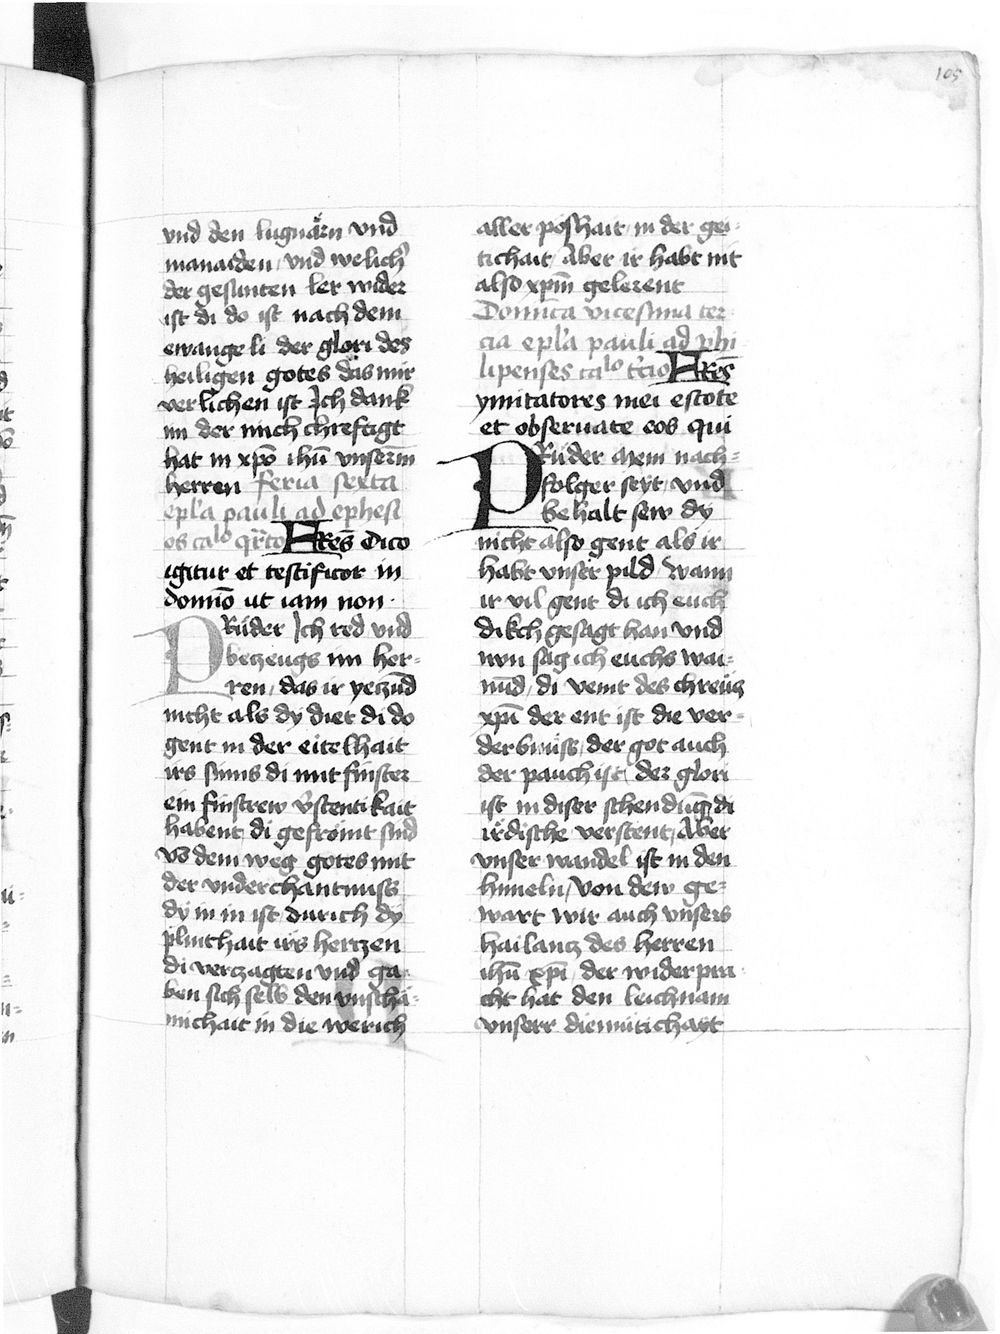 105
vnd den lugnärn vnd
manaiden vnd welich
der gesunten ler wider
ist di do ist nach dem
ewangeli der glori des
heiligen gotes das mir
verlichen ist Ich dank
im der mich chreftigt
hat in xpō ihū vnserm
herren feria sexta
epl'a pauli ad ephesi
os ca lo qrto Fres Dico
igitur et testificor in
domīo ut iam non
Prüder Ich red vnd
bezeugs im her-
ren das ir yeczūd
nicht als dy diet di do
gent in der eitelhait
irs sinns di mit finster
ein finstrew v̄stentikait
habent di gefrömt sind
vō dem weg gotes mit
der vnderchantnuss
dy in in ist durich dy
plinthait irs herczen
di verczagten vnd ga-
ben sich selb den vnschä-
michait in die werich
aller poshait in der gei-
tichait Aber ir habt nit
also xpm gelerent
Domīca vicesima ter-
cia epl'a pauli ad phi
lipenses ca lo tcio Fres
ymitatores mei estote
et obseruate eos qui
Prüder mein nach-
folger seyt vnd
behalt sew dy
nicht also gent als ir
habt vnser pild Wann
ir vil gent di ich euch
dikch gesagt han vnd
nvn sag ich euchs wai-
nūd di veint des chreücz
xpī der ent ist die ver-
derbnuss der got auch
der pauch ist der glori
ist in diser schendūg di
irdische verstent Aber
vnser wandel ist in den
himeln von dew ge-
wart wir auch vnsers
hailancz des herren
ihū xpī der widerpra-
cht hat den leichnam
vnserr diemütichayt